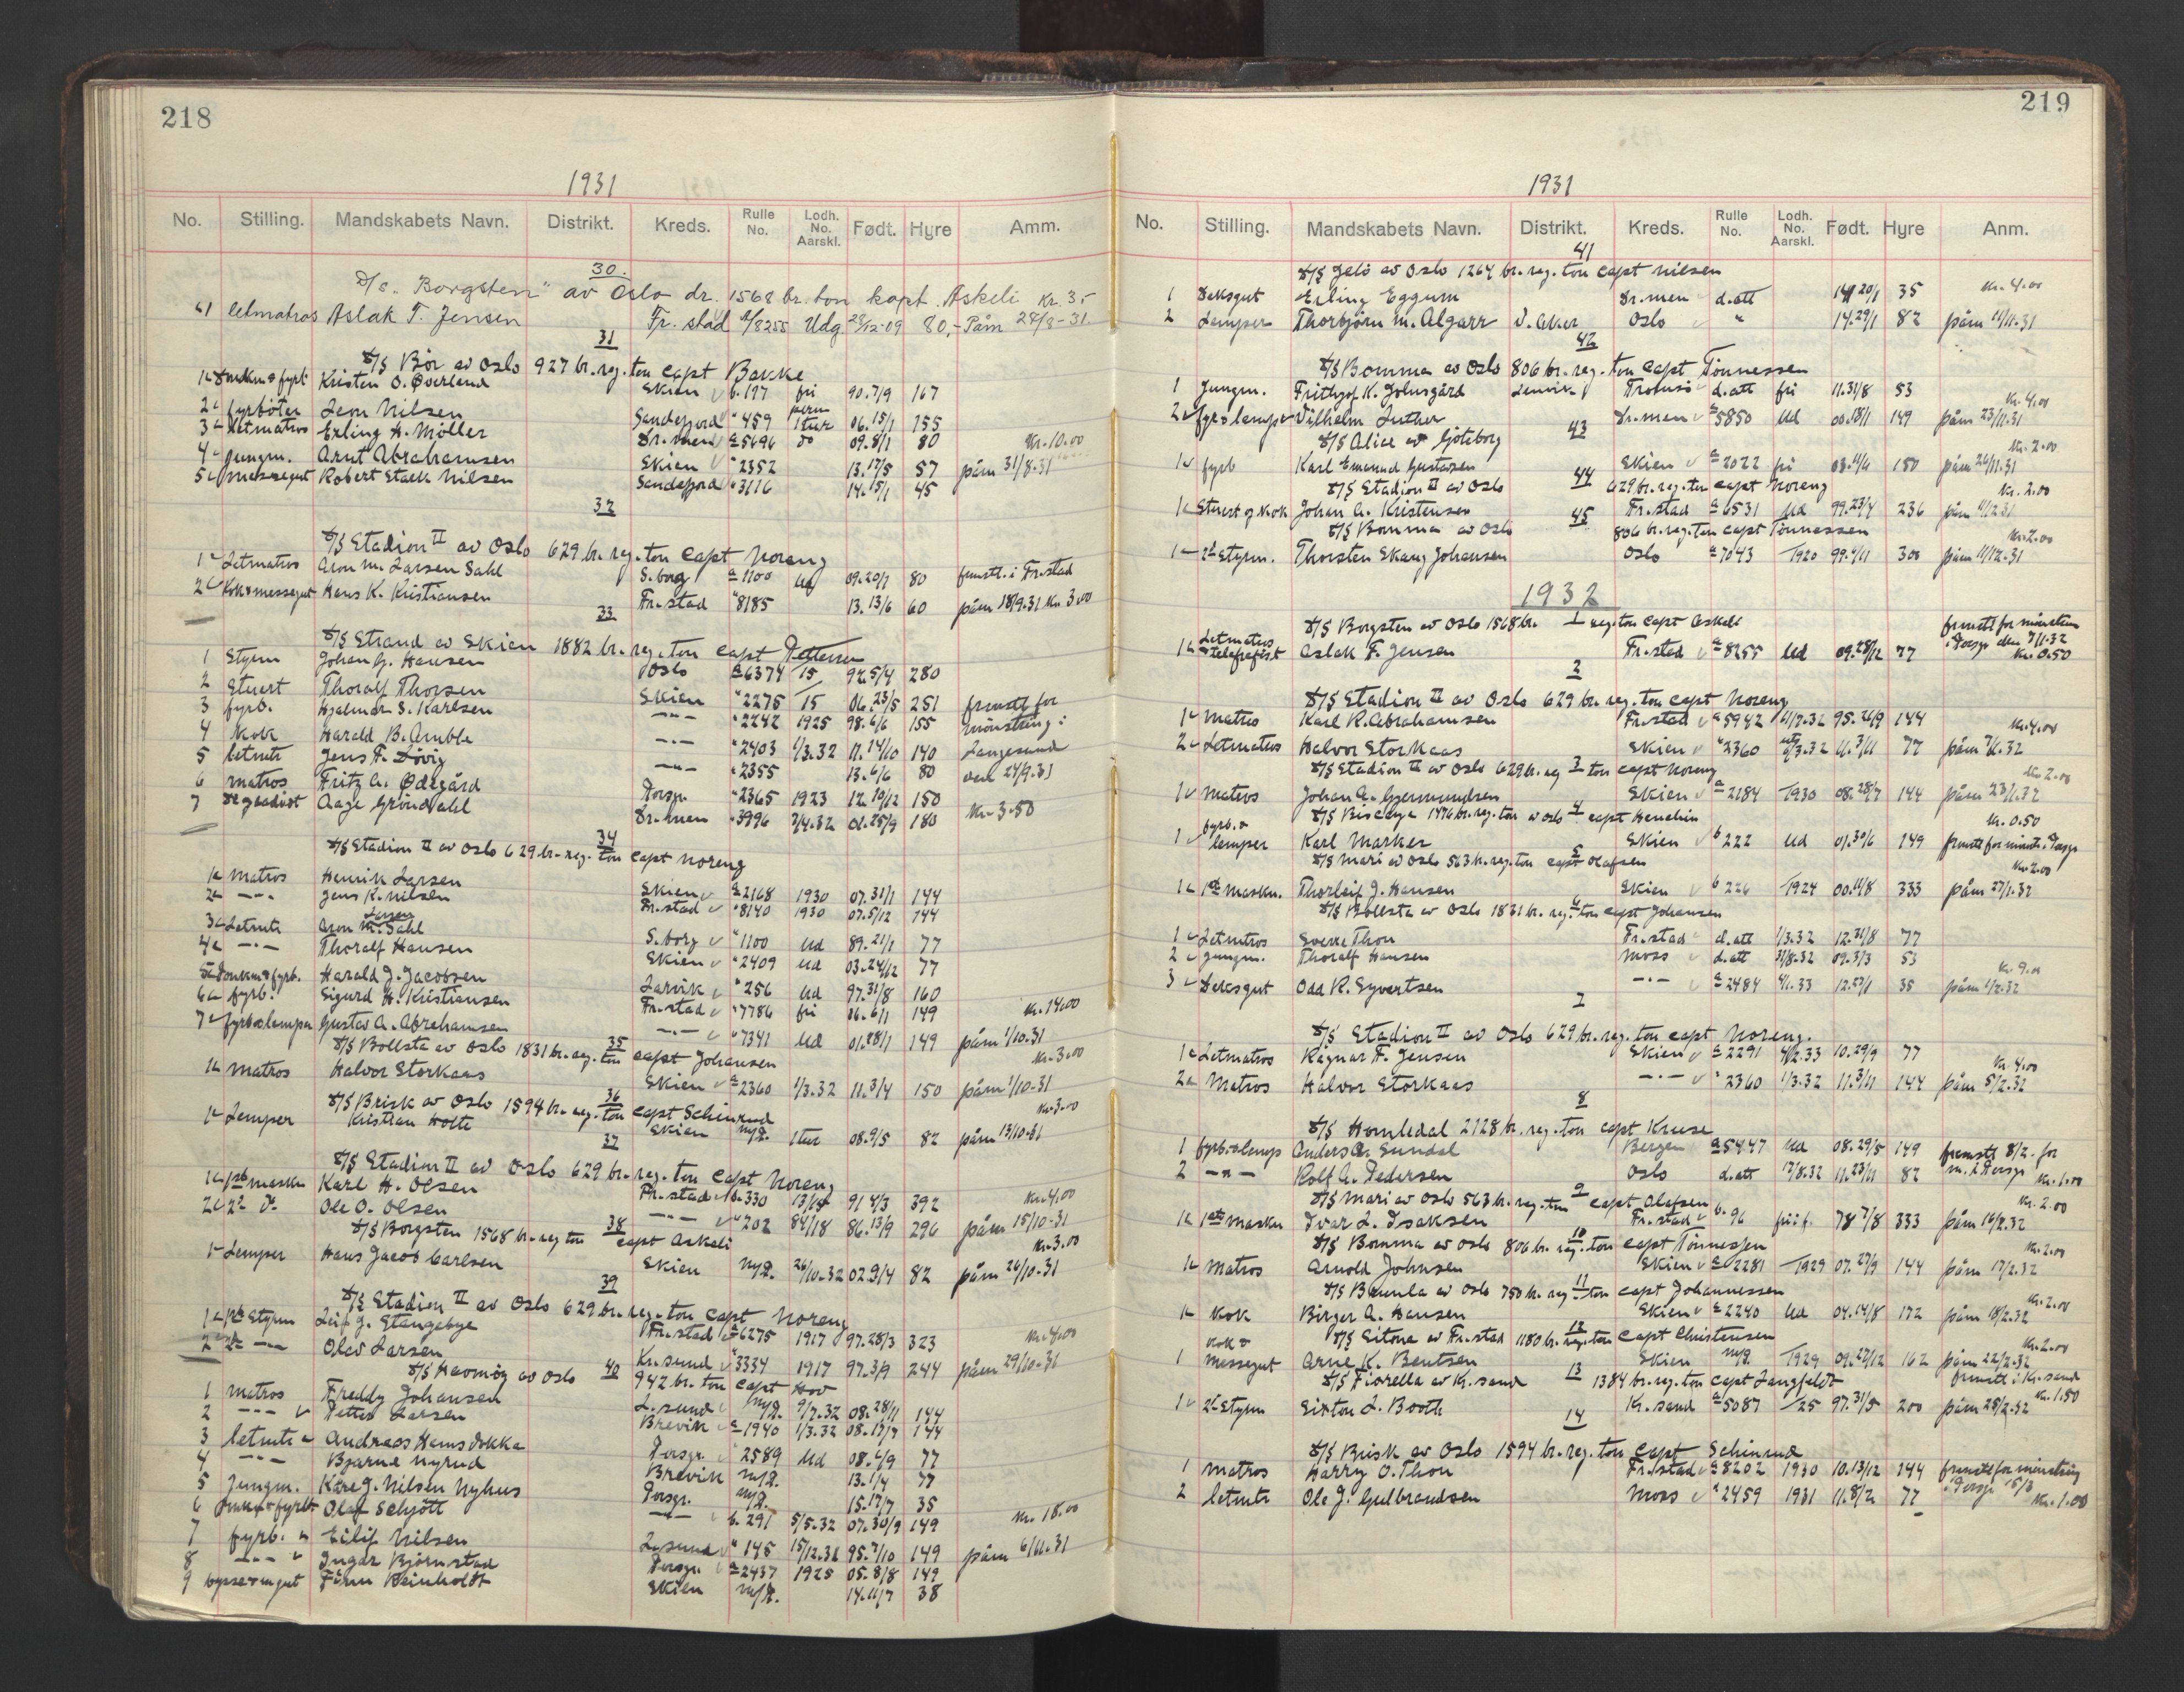 218
1931
No. Stilling. Mandskabets Navn. Distrikt. Kreds. Rulle No. Lodh. No. Aarskl. Født. Hyre Amm.
30.
D/s. "Borgsten" av Oslo dr. 1568 br. ton kapt. Askeli Kr. 3.-
1 letmatros Aslak F. Jensen Fr. stad a/8255 Udg 28/12-09 80,- Påm 28/8-31.
31
D/S Bör av Oslo 927 br. reg. ton Capt Bakke
1 Donkm & fyrb Kristen O. Överland Skien b. 197 fri 90.7/9 167
2 fyrböter Leon Nilsen Sandefjord " 459 perm 1tur 06.15/1 155
3 Letmatros Erling H. Möller Dr.men a 5696 do 09.8/1 80 Kr. 10.00
4 Jungm. Arnt Abrahamsen Skien " 2352 13.17/5 57 påm 31/8-31
5 messegut Robert Stack Nilsen Sandefjord " 3116 14.15/1 45
32
D/S Stadion II av Oslo 629 br. reg. ton Capt Noreng
1 Letmatros Aron M. Larsen Dahl S.borg a 1100 Ud 09.20/7 80 fremst. i Fr.stad
2 Kok & messegut Hans K. Kristiansen Fr.stad " 8185 13.13/6 60 påm 18/9.31 Kr. 3.00
33
D/S Strand av Skien 1882 br. reg. ton Capt Pettersen
1 Styrm Johan G. Hansen Oslo a 6374 15 92.5/4 280
2 Stuert Thoralf Thorsen Skien " 2275 15 06.23/5 251 fremst for
3 fyrb. Hjalmar S. Karlsen -"- " 2242 1925 98.6/6 155 mönstring i
4 Kok Harald B. Amble -"- " 2403 1/3.32 11.14/10 140 Langesund
5 letmtr Jens F. Lövig -"- " 2355 13.6/6 80 den 24/9.31
6 matros Fritz A. Ødegård Porsgr. " 2365 1923 12.19/12 150
7 Aage Gröndahl Dr.men " 3996 7/4.32 01.25/9 180 Kr. 3.50
34
D/S Stadion II av Oslo 629 br. reg. ton Capt Noreng
1 Matros Henrik Larsen Skien a 2168 1930 07.31/1 144
2 -"- Jens K. Nilsen Fr.stad " 8140 1930 07.5/12 144
3 Letmtr Aron M. Larsen Dahl S.borg " 1100 Ud 89.21/1 77
4 -"- Thoralf Hansen Skien " 2409 Ud 03.24/12 77
5 Donkm & fyrb. Harald J. Jacobsen Larvik " 256 Ud 97.31/8 160
6 fyrb. Sigurd H. Kristiansen Fr.stad " 7786 fri 06.6/11 149 Kr. 14.00
7 fyrb & lemper Gustav A. Abrahamsen -"- " 7341 Ud 01.28/1 149 påm 1/10.31
35
D/S Bollsta av Oslo 1831 br. reg. ton Capt Johansen Kr. 3.00
1 Matros Halvor Storkaas Skien a 2360 1/3.32 11.3/4 150 påm 1/10-31
36
D/S Brisk av Oslo 1594 br. reg. ton Capt Schinrud Kr. 3.00
1 Lemper Kristian Holte Skien mf2. 1tur 08.9/5 82 påm 13/10-31
37
D/S Stadion II av Oslo 629 br. reg. ton Capt Noreng
1 1ste maskn Karl H. Olsen Fr.stad b. 330 13/15 91 4/3 392 Kr. 4.00
2 2d do Ole O. Olsen -"- " 202 84/18 86.13/9 296 påm 15/10-31
38
D/S Borgsten 1568 br. reg ton capt Askeli Kr. 3.00
1 Lemper Hans Jacob Carlsen Skien mf2. 26/10-32 02.9/4 82 påm 26/10-31
39
D/S Stadion II av Oslo 629 br. reg. ton Capt Noreng
1 1ste Styrm Leif J. Stangebye Fr.stad a 6275 1917 97.28/3 323 Kr. 4.00
2 2d -"- Olav Larsen Kr.sund " 3334 1917 97.3/9 244 påm 29/10-31
40
D/S Havmöy av Oslo 942 br. ton Capt Hov
1 matros Freddy Johansen L.sund mf2. 9/7.32 08.28/11 144
2 -"- Petter Larsen Brevik a 1940 1/3.32 08.17/7 144
3 letmtr Andreas Hansdokka Porsgr. " 2589 Ud 08.4/9 77
4 -"- Bjarne Nyrud Brevik mf2. 13.1/4 77
5 Jungm. Kåre J. Nilsen Nyhus Porsgr. mf2. 15.17/7 35
6 Donkm & fyrb Olaf Schjött -"- b. 291 5/5.32 07.30/9 149 Kr. 18.00
7 fyrb. Eilif Nilsen L.sund " 145 15/12.31 95.7/10 149 påm 6/11.31
8 -"- Ingar Björnstad Porsgr. a 2437 1925 05.8/8 149
9 bysse & m.gut Finn Reinholdt Skien mf2. 14.11/7 38
219
1931
No. Stilling. Mandskabets Navn. Distrikt. Kreds. Rulle No. Lodh. No. Aarskl. Født. Hyre Anm.
41
D/S Jelö av Oslo 1264 br. reg. ton Capt Nilsen
1 Deksgut Erling Eggum Dr.men d.att 14 20/1 35 Kr. 4.00
2 Lemper Thorbjörn M. Algarr V. Aker Oslo " 14.29/1 82 påm 11/11-31
42
D/S Bomma av Oslo 806 br. reg. ton Capt Tönnessen
1 Jungm. Frithjof K. Johnsgård Lenvik Tromsö d.att fri 11.31/8 53 Kr. 4.00
2 fyr & lemper Vilhelm Luther Dr.men a 5850 Ud 00.18/11 149 påm 23/11.31
43
D/S Alice av Göteborg Kr. 2.00
1 fyrb Karl Emanuel Gustavsen Skien a 2022 fri 03.4/6 150 påm 26/11.31
44
D/S Stadion II av Oslo 629 br. reg. ton Capt Noreng Kr. 2.00
1 Stuert og Kok Johan A. Kristensen Fr.stad a 6531 Ud 99.23/4 236 påm 11/12.31
45
D/S Bomma av Oslo 806 br. reg. ton Capt Tönnessen Kr. 2.00
1 2d Styrm. Thorsten Skaug Johansen Oslo a 7043 1920 99.4/11 300 påm 11/12.31
1932
1
D/S Borgsten av Oslo 1568 br. reg. ton Capt Askeli fremst for mönstren
1 Letmatros & telefrafist Aslak F. Jensen Fr.stad a 8255 Ud 09.28/12 77 i Porsgr den 7/1.32 Kr. 0.50
2
D/S Stadion II av Oslo 629 br. reg. ton Capt Noreng
1 Matros Karl R. Abrahamsen Fr.stad a 5942 21/7.32 95.26/9 144 Kr. 4.00
2 Letmatros Halvor Storkaas Skien " 2360 1/3.32 11.3/11 77 påm 7/1.32
3
D/S Stadion II av Oslo 629 br. reg ton capt Noreng Kr. 2.00
1 Matros Johan A. Gjermundsen Skien a 2184 1930 08.28/7 144 påm 23/1.32
4
D/S Biscaya 1476 br. reg. ton av Oslo capt Henchin Kr. 0.50
1 fyrb. & lemper Karl Marker Skien b 222 Ud 01.30/6 149 fremst for mönst. i Porsgr
5
D/S Mari av Oslo 563 br. reg. ton capt Olafsen Kr. 2.00
1 1ste Maskn. Thorleif J. Hansen Skien b 226 1924 00.11/8 333 påm 27/1.32
6
D/S Bollsta av Oslo 1831 br. reg. ton Capt Johansen
1 Letmtros Sverre Thon Fr.stad d.att 1/3.32 12.31/8 77
2 Jungm. Thoralf Hansen Moss d.att 31/8.32 09.3/3 53 Kr. 9.00
3 Deksgut Odd R. Syvertsen -"- a 2484 4/1.33 12.27/1 35 påm 1/2.32
7
D/S Stadion II av Oslo 629 br. reg. ton Capt Noreng.
1 Letmatros Ragnar F. Jensen Skien a 2291 4/2.33 10.29/9 77 Kr. 4.00
2 Matros Halvor Storkaas -"- " 2360 1/3.32 11.3/11 144 påm 5/2.32
8
D/S Homledal 2128 br. reg. ton Capt Kruse
1 fyrb. & lemp Anders A. Sundal Bergen a 5447 Ud 08.29/5 149 fremst 8/2. for
2 -"- Rolf A. Pedersen Oslo d.att 17/8.32 11.23/11 82 m. i Porsgr Kr. 1.00
9
D/S Mari av Oslo 563 br. reg. ton capt Olafsen Kr. 2.00
1 1ste Maskn Ivar L. Isaksen Fr.stad b. 96 fri f. 78 7/8 333 påm 16/2.32
10
D/S Bomma av Oslo 806 br. reg. ton Capt Tönnessen Kr. 2.00
1 Matros Arnold Johnsen Skien a 2281 1929 07.27/9 144 påm 17/2.32
11
D/S Bamla av Oslo 750 br. reg. ton capt Johannessen Kr. 2.00
1 Kok Birger A. Hansen Skien a 2240 Ud 04.14/8 172 påm 18/2.32
12
D/S Sitona av Fr.stad 1180 br. reg. ton Capt Christensen Kr. 2.00
1 Kok & messegut Arne K. Bentsen Skien mf2. 1929 09.27/12 162 påm 22/2.32
13
D/S Fiorella av Kr.sand 1384 br. reg. ton Capt Langfeldt fremst i Kr.sand
1 2d Styrm Sixton L. Booth Kr.sand a 5087 /25 97.31/5 200 påm 25/2.32 Kr. 1.50
14
D/S Brisk av Oslo 1594 br. reg. ton Capt Schinrud
1 Matros Harry O. Thon Fr.stad a 8202 1930 10.13/12 144 fremst for mönstring
2 letmtr Ole J. Gulbrandsen Moss " 2459 1931 11.8/2 77 i Porsgr 15/3 Kr. 1.00